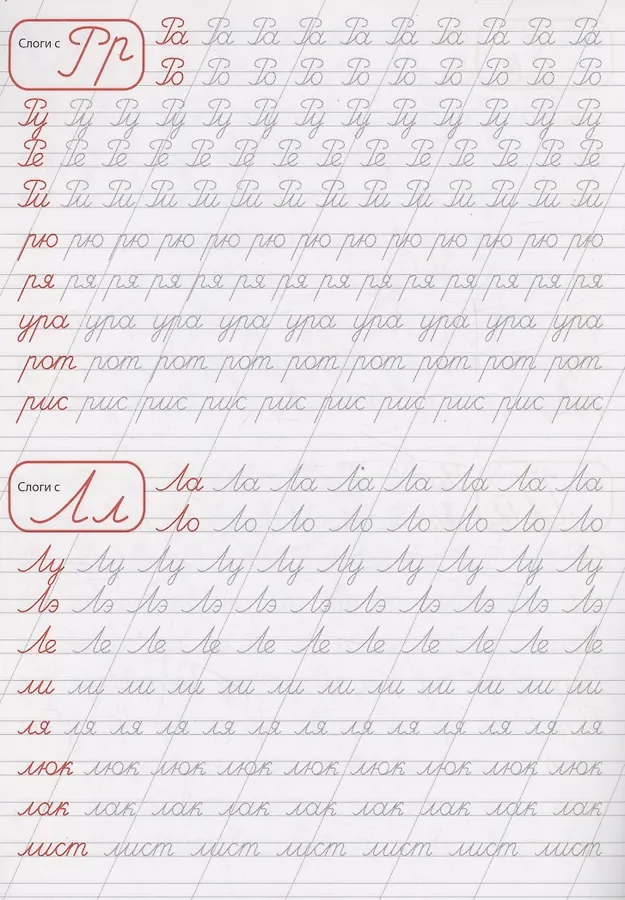 Слоги с Рр
Ра Ра Ра Ра Ра Ра Ра Ра Ра Ра
Ро Ро Ро Ро Ро Ро Ро Ро Ро Ро
Ру Ру Ру Ру Ру Ру Ру Ру Ру Ру Ру Ру Ру
Ре Ре Ре Ре Ре Ре Ре Ре Ре Ре Ре Ре Ре Ре
Ри Ри Ри Ри Ри Ри Ри Ри Ри Ри Ри Ри Ри
рю рю рю рю рю рю рю рю рю рю рю рю рю
ря ря ря ря ря ря ря ря ря ря ря ря ря ря
ура ура ура ура ура ура ура ура ура
рот рот рот рот рот рот рот рот рот
рис рис рис рис рис рис рис рис рис рис
Слоги с Лл
Ла Ла Ла Ла Ла Ла Ла Ла
Ло Ло Ло Ло Ло Ло Ло Ло
Лу Лу Лу Лу Лу Лу Лу Лу Лу Лу
Лэ Лэ Лэ Лэ Лэ Лэ Лэ Лэ Лэ Лэ Лэ
Ле Ле Ле Ле Ле Ле Ле Ле Ле Ле Ле
ли ли ли ли ли ли ли ли ли ли ли ли
ля ля ля ля ля ля ля ля ля ля ля ля ля
люк люк люк люк люк люк люк люк люк
лак лак лак лак лак лак лак лак лак
лист лист лист лист лист лист лист